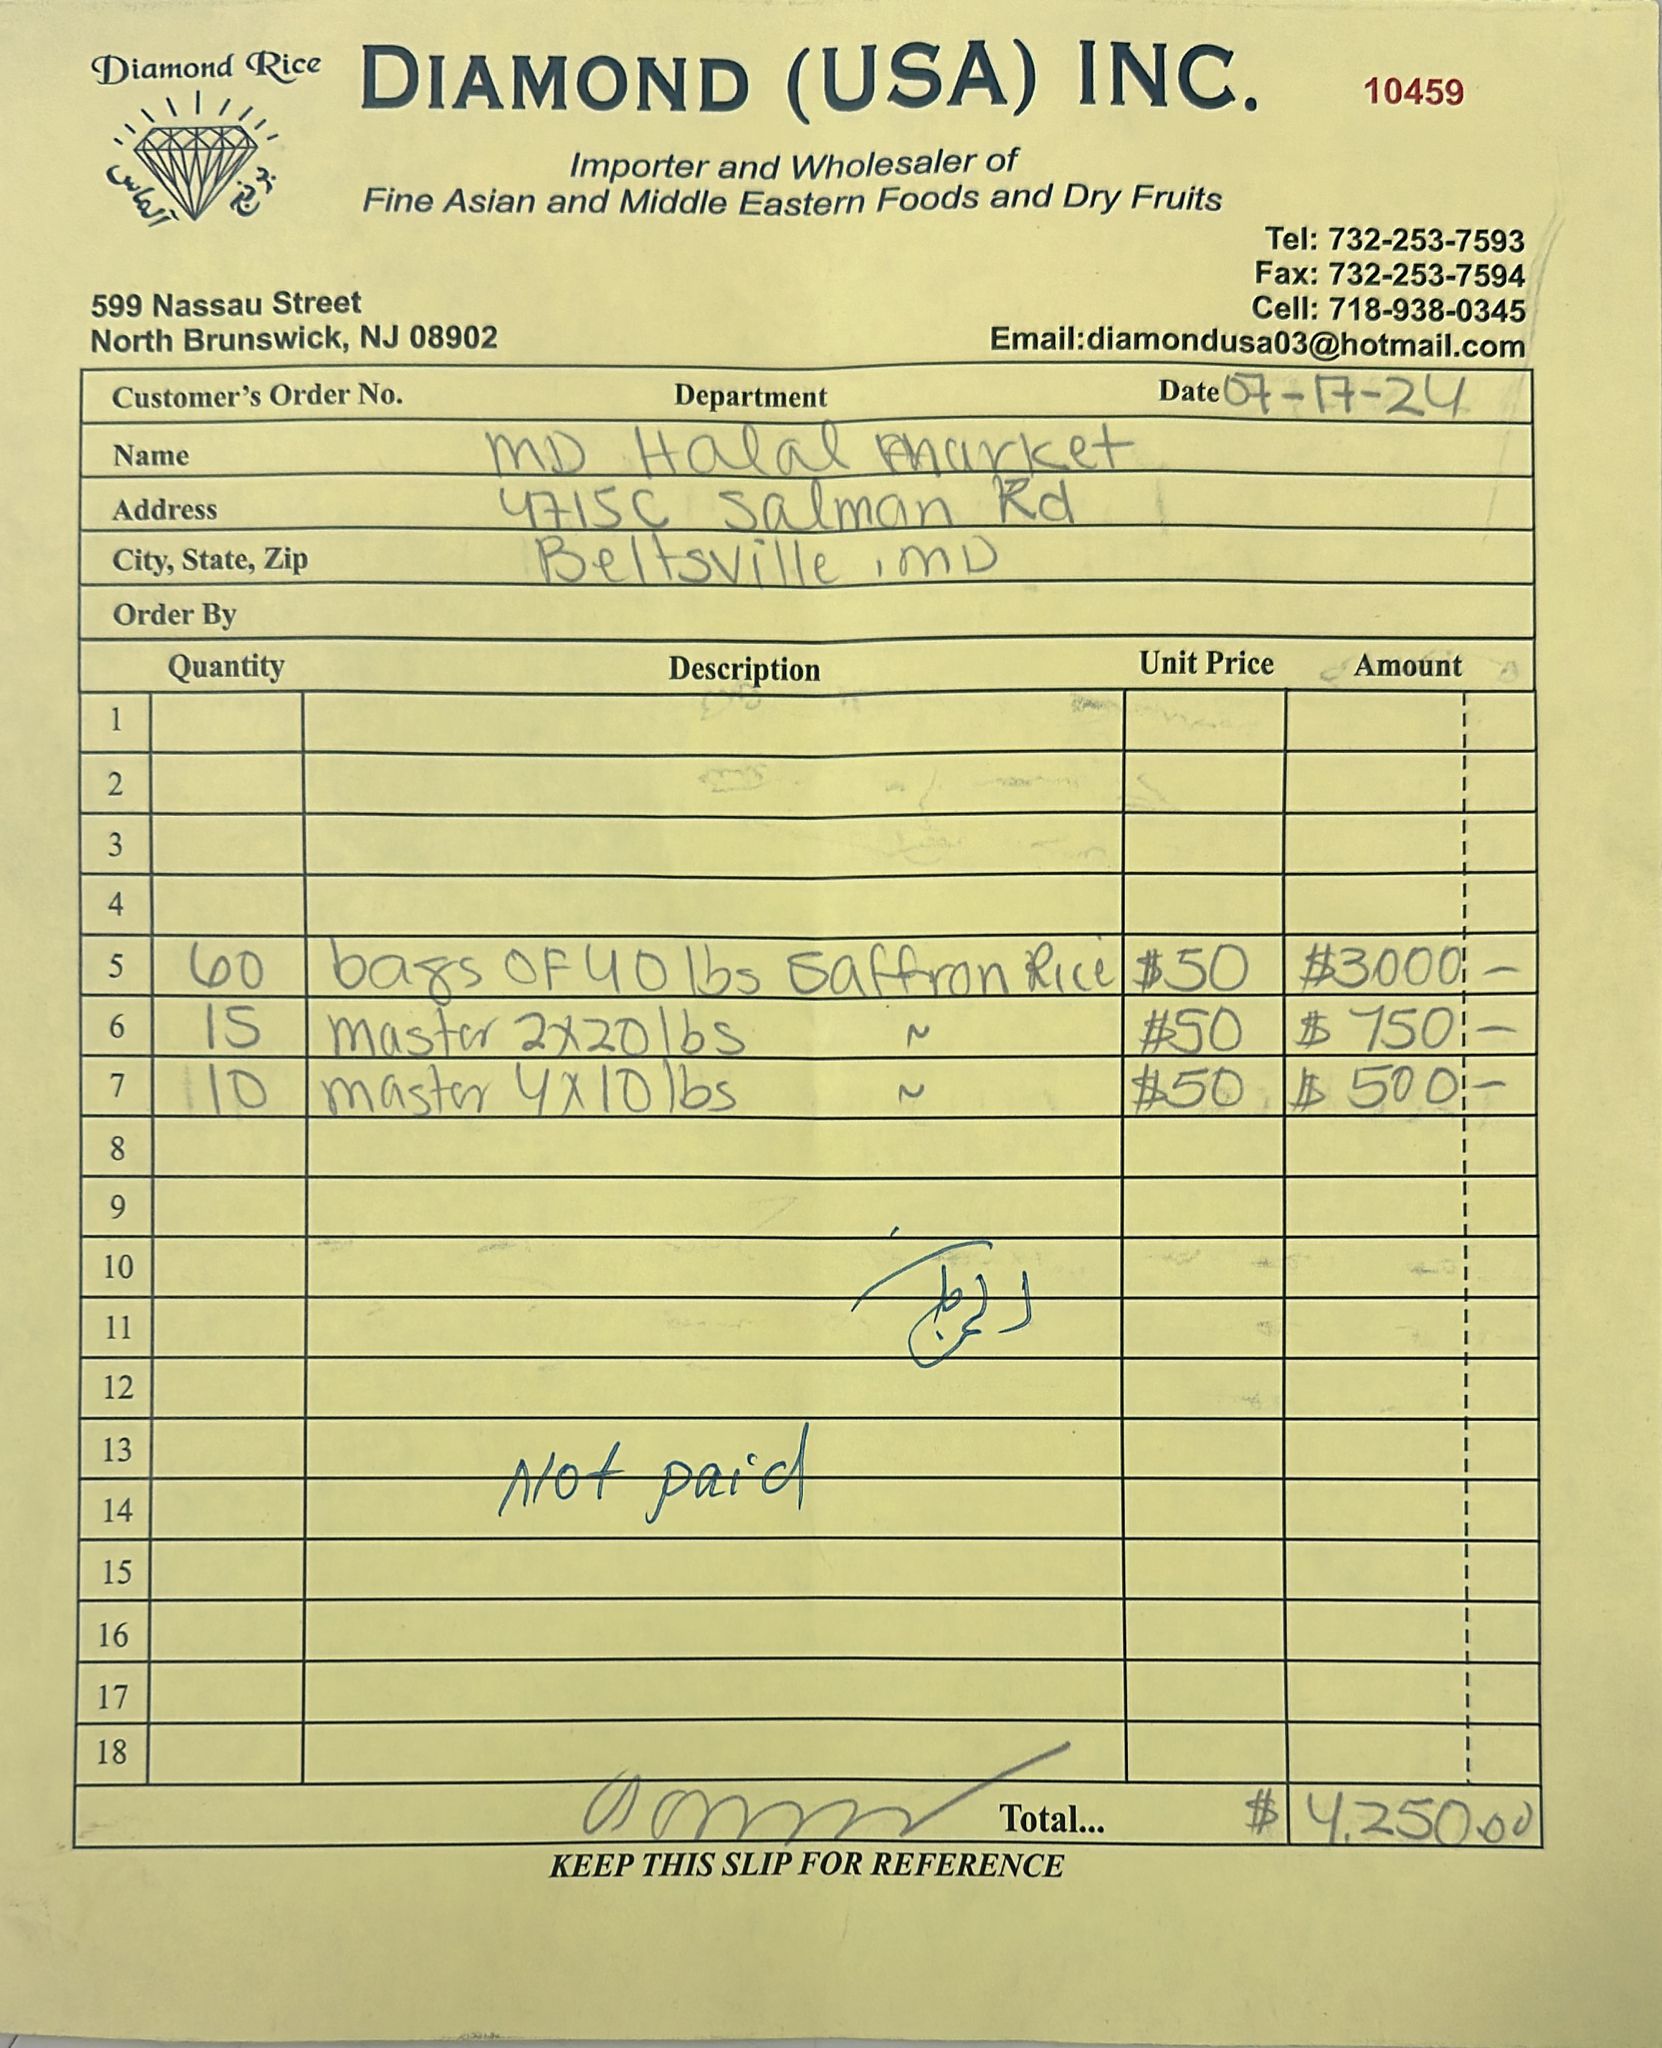 Diamond Rice
DIAMOND (USA) INC.
10459
برنج
آلماس
Importer and Wholesaler of
Fine Asian and Middle Eastern Foods and Dry Fruits
Tel: 732-253-7593
Fax: 732-253-7594
Cell: 718-938-0345
Email:diamondusa03@hotmail.com
599 Nassau Street
North Brunswick, NJ 08902
Customer's Order No. Department Date 07-17-24
Name MD Halal Market
Address 4715C Salman Rd
City, State, Zip Beltsville, MD
Order By
Quantity Description Unit Price Amount
1
2
3
4
5 60 bags OF 40 lbs Saffron Rice $50 $3000 -
6 15 master 2x20 lbs ~ $50 $ 750 -
7 10 master 4x10 lbs ~ $50 $ 500 -
8
9
10
11
12
13
Not paid
14
15
16
17
18
Total... $ 4,250.00
KEEP THIS SLIP FOR REFERENCE